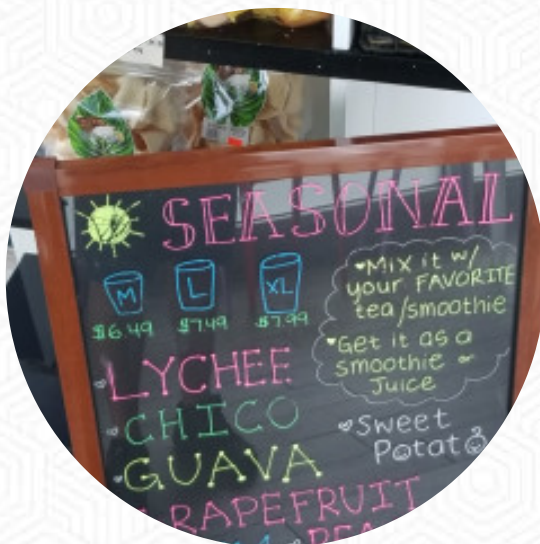 SEASONAL
M L XL
$6.49 $7.49 $7.99
♥Mix it w/
your FAVORITE
tea/smoothie
♥Get it as a
smoothie or
Juice
LYCHEE
CHICO
GUAVA
♥Sweet
Potato
RAPEFRUIT